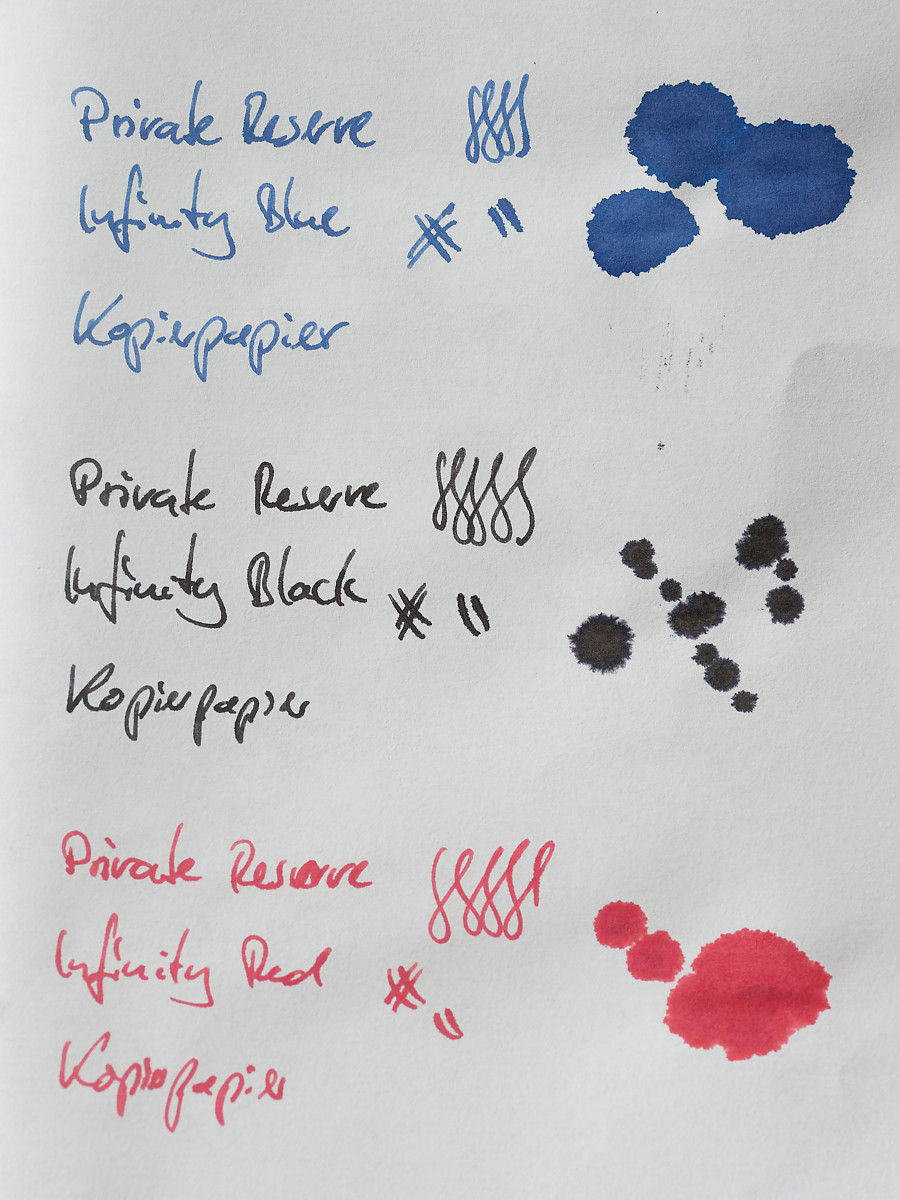 Private Reserve
Infinity Blue
Kopierpapier
Private Reserve
Infinity Black
Kopierpapier
Private Reserve
Infinity Red
Kopierpapier